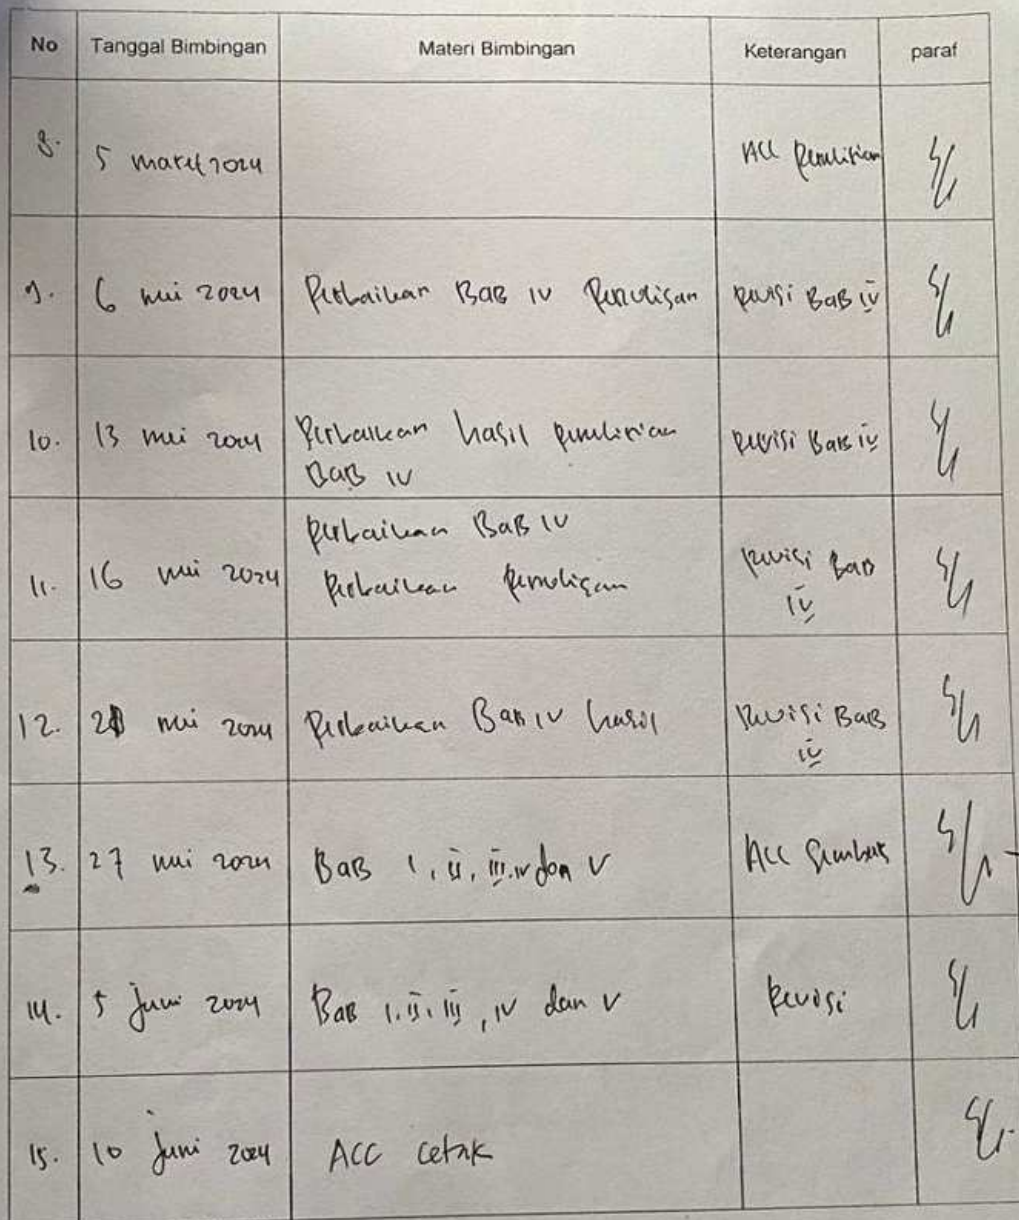 No Tanggal Bimbingan Materi Bimbingan Keterangan paraf
8. 5 maret 2024 ACC Penelitian
9. 6 mei 2024 Perbaikan BAB IV Penulisan Revisi BAB IV
10. 13 mei 2024 Perbaikan hasil penelitian Revisi Bab IV
BAB IV
Perbaikan BAB IV
11. 16 mei 2024 Perbaikan Penulisan Revisi Bab
IV
12. mei 2024 Perbaikan Bab IV hasil Revisi BAB
IV
13. 27 mei 2024 BAB I, II, III, IV dan V ACC
14. 5 Juni 2024 BAB I, II, III, IV dan V Revisi
15. 10 Juni 2024 ACC cetak